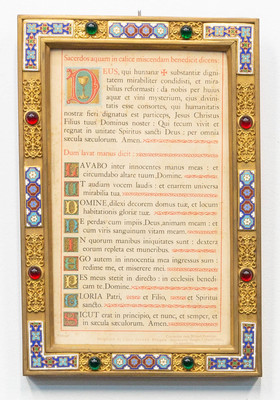 Sacerdos aquam in calice miscendam benedicit dicens.
DEUS, qui humanæ ✠ substantiæ digni
tatem mirabiliter condidisti, et mira
bilius reformasti: da nobis per hujus
aquæ et vini mysterium, ejus divini
tatis esse consortes, qui humanitatis
nostræ fieri dignatus est particeps, Jesus Christus
Filius tuus Dominus noster: Qui tecum vivit et
regnat in unitate Spiritus sancti Deus: per omnia
sæcula sæculorum. Amen.
Dum lavat manus dicit:
LAVABO inter innocentes manus meas: et
circumdabo altare tuum, Domine.
UT audiam vocem laudis: et enarrem universa
mirabilia tua.
DOMINE, dilexi decorem domus tuæ, et locum
habitationis gloriæ tuæ.
NE perdas cum impiis, Deus, animam meam: et
cum viris sanguinum vitam meam.
IN quorum manibus iniquitates sunt: dextera
eorum repleta est muneribus.
EGO autem in innocentia mea ingressus sum:
redime me, et miserere mei.
PES meus stetit in directo: in ecclesiis benedi
cam te, Domine.
GLORIA Patri, et Filio, et Spiritui
sancto.
SICUT erat in principio, et nunc, et semper, et
in sæcula sæculorum. Amen.